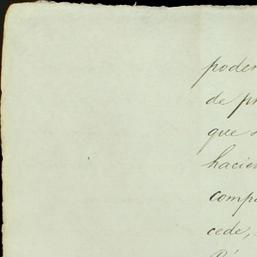 poder
de pr
que s
hacien
comp
cede,